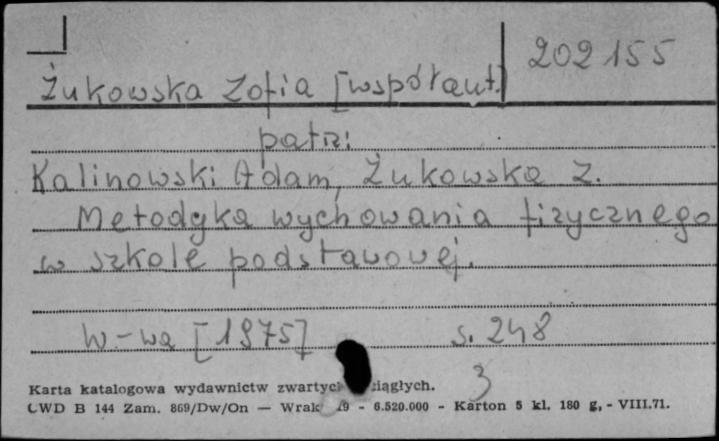 202155
Żukowska Zofia [współaut.]
patrz:
Kalinowski Adam, Żukowska Z.
Metodyka wychowania fizycznego
w szkole podstawowej.
W-wa [1975] s. 248
3
Karta katalogowa wydawnictw zwartych ciągłych.
CWD B 144 Zam. 869/Dw/On — 6.520.000 - Karton 5 kl. 180 g, - VIII.71.